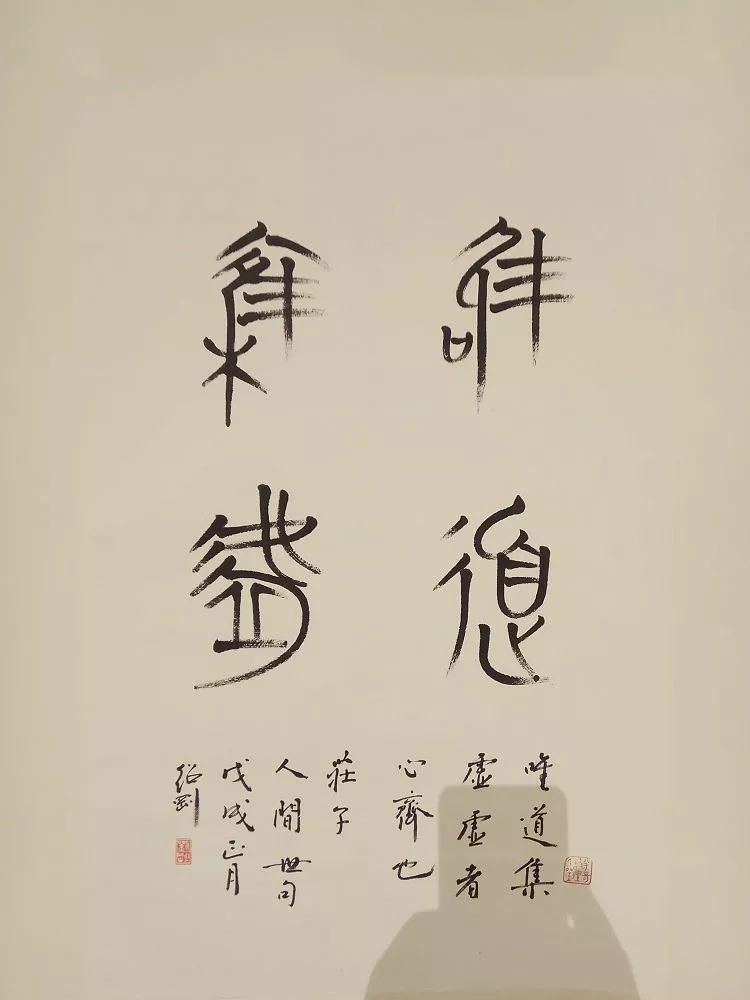 唯道
集虛
唯道集
虛虛者
心齋也
莊子
人間世句
戊戌正月
紹剛